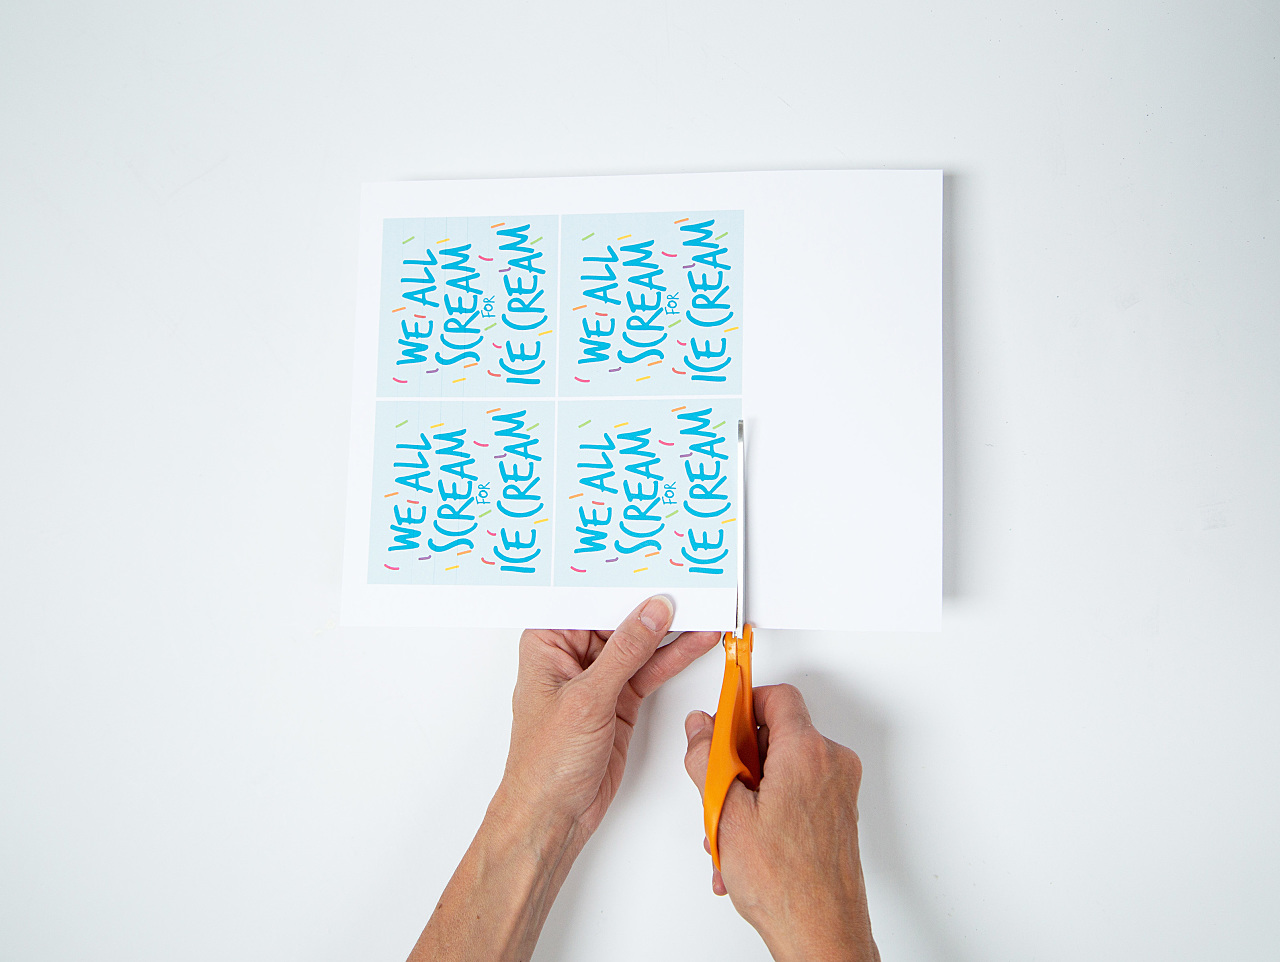 WE ALL
SCREAM
FOR
ICE CREAM
WE ALL
SCREAM
FOR
ICE CREAM
WE ALL
SCREAM
FOR
ICE CREAM
WE ALL
SCREAM
FOR
ICE CREAM